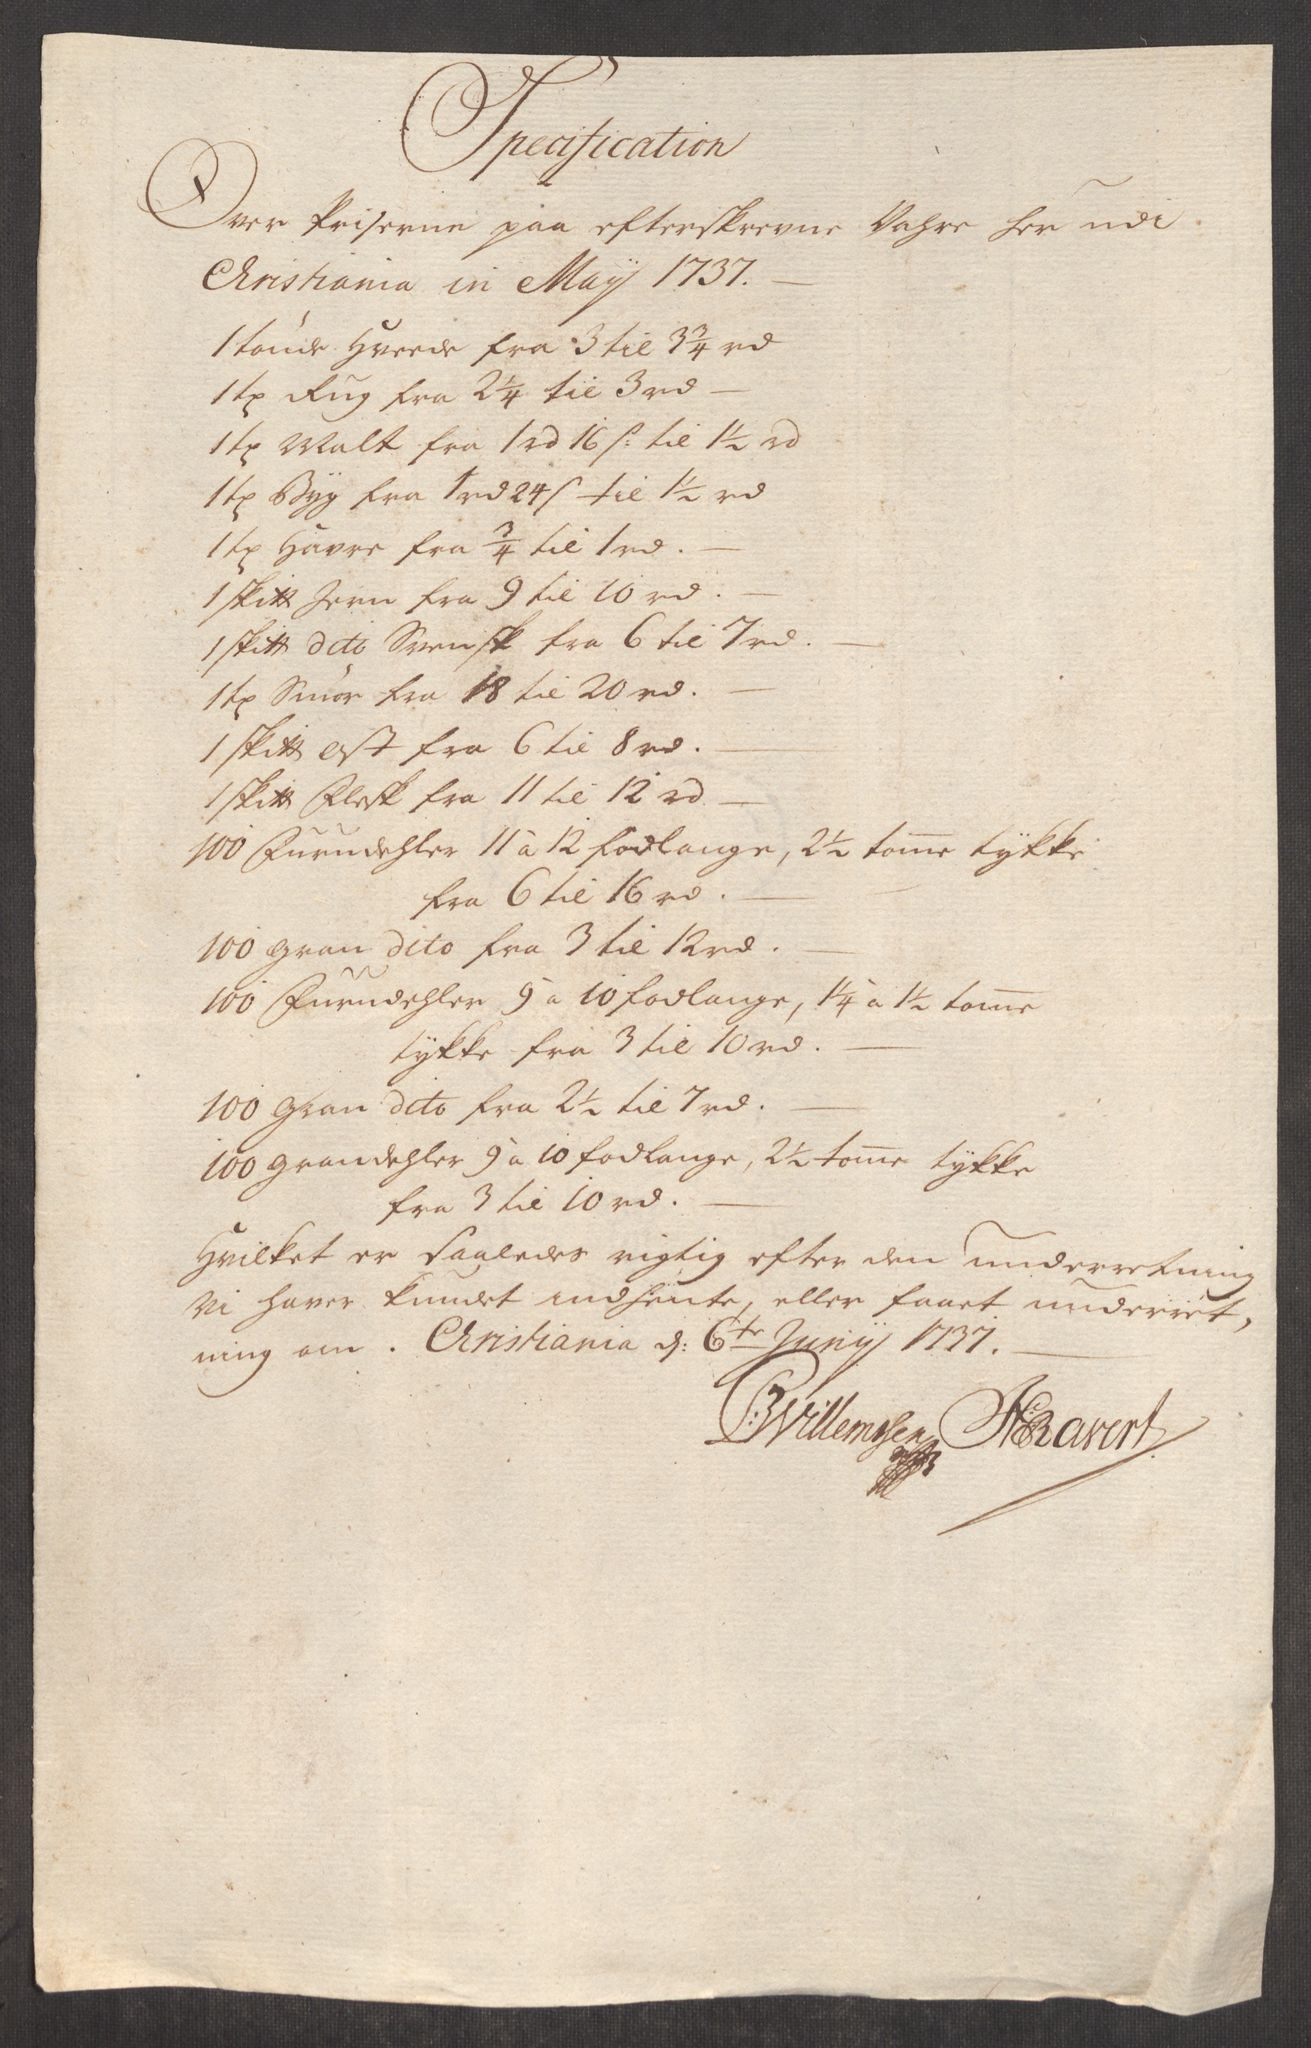 Specification
Over Priserne paa efterskrevne Vahre her udi
Christiania in Maÿ 1737. —
1 tønde Hveede fra 3 til 3 3/4 rd
1 tɧ Rug fra 2 1/4 til 3 rd —
1 tɧ Malt fra 1 rd 16 s: til 1 1/2 rd
1 tɧ Byg fra 1 rd 24 s til 1 1/2 rd
1 tɧ Havre fra 3/4 til 1 rd. —
1 skit℔ Jern fra 9 til 10 rd. —
1 skit℔ dito Svensk fra 6 til 7 rd. —
1 tɧ Smør fra 18 til 20 rd. —
1 skit℔ ost fra 6 til 8 rd. —
1 skit℔ Flesk fra 11 til 12 rd —
100 Furudehler 11 a 12 fodlange, 2 1/2 tom̅e tÿkke
fra 6 til 16 rd. —
100 gran dito fra 3 til 12 rd. —
100 Furudehler 9 a 10 fodlange, 1 1/4 a 1 1/2 tom̅e
tÿkke fra 3 til 10 rd. —
100 Gran dito fra 2 1/2 til 7 rd. —
100 grandehler 9 a 10 fodlange, 2 1/2 tom̅e tÿkke
fra 3 til 10 rd. —
Hvilket er saaledes rigtig efter den underretning
vi haver kundet indhente, eller faaet underret,
ning om. Christiania d: 6te Junij 1737. —
Willemsen Ravert